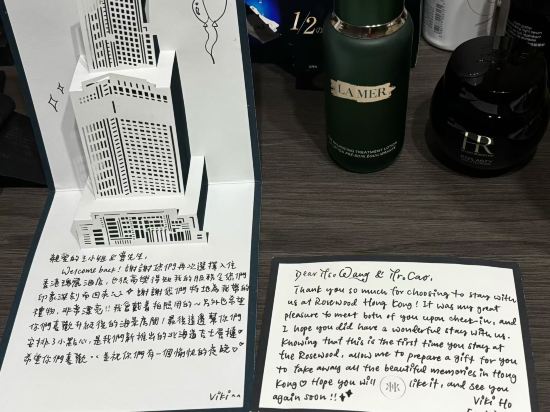 1/2の
LA MER
HR
親愛的王小姐&曹先生,
Welcome back! 謝謝您們再次選擇入住
香港瑰麗酒店, 也很高興得知我的服務令您們
印象深刻而回來~ 謝謝您們特地為我帶的
禮物, 非常漂亮!!
你們喜歡升級後的海景房間!
安排了小點心, 是我們新推出的北海道吉士
希望你們喜歡
祝你們有一個愉快的夜晚
Viki
Dear Ms. Wang & Mr. Cao,
Thank you so much for choosing to stay with
us at Rosewood Hong Kong! It was my great
pleasure to meet both of you upon check-in, and
I hope you did have a wonderful stay with us.
Knowing that this is the first time you stay at
the Rosewood, allow me to prepare a gift for you
to take away all the beautiful memories in Hong
Kong ♡ Hope you will like it, and see you
again soon!!
Viki Ho